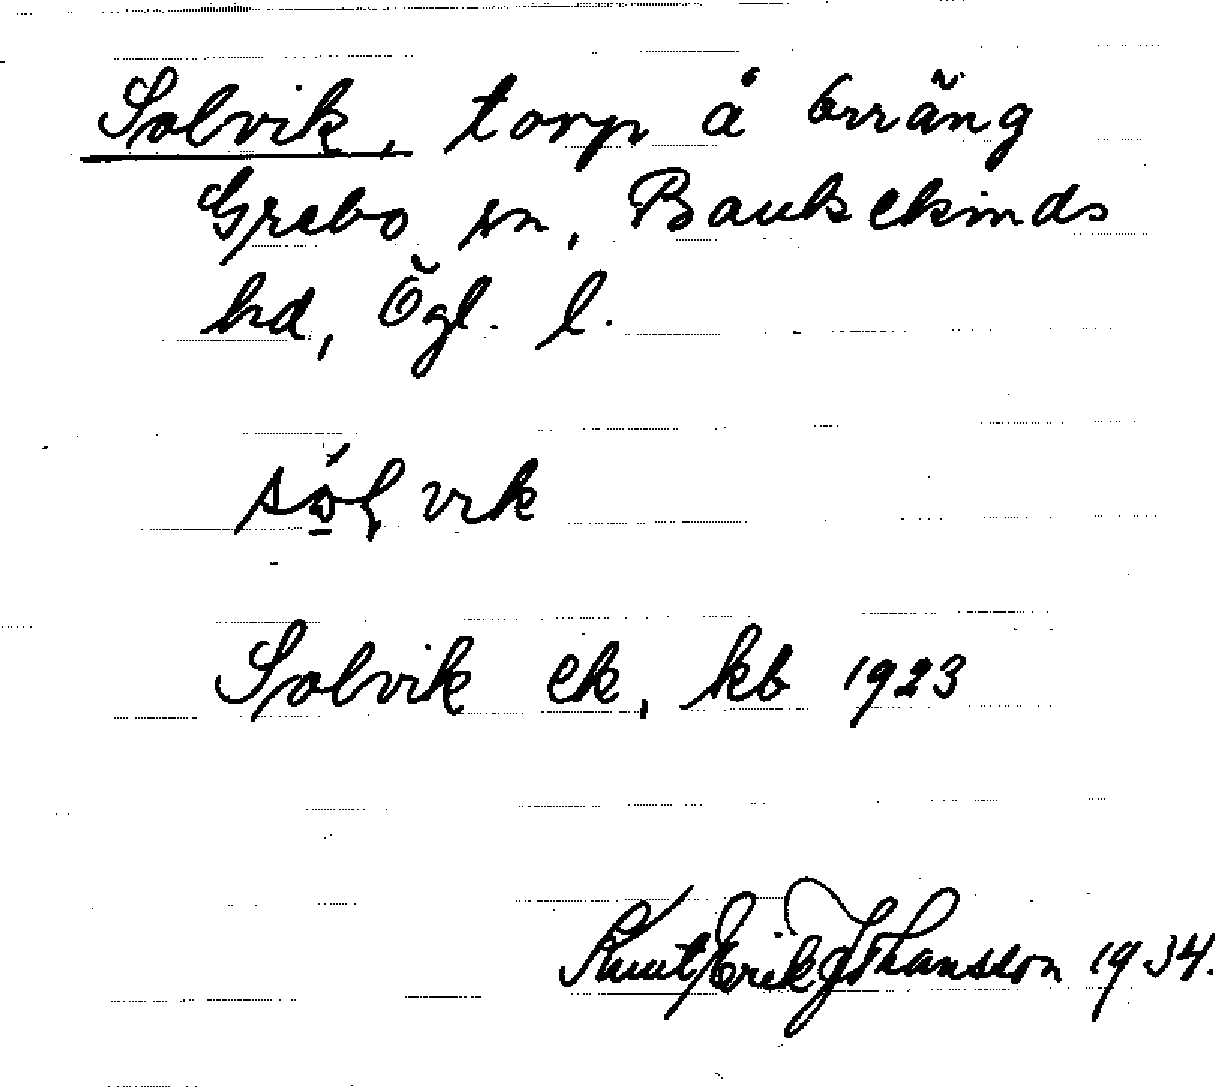 Solvik, torp å Orräng
Grebo sn, Bankekinds
hd, Ögl. l.
Solvik ek, kb 1923
Knut Erik Johansson 1934.